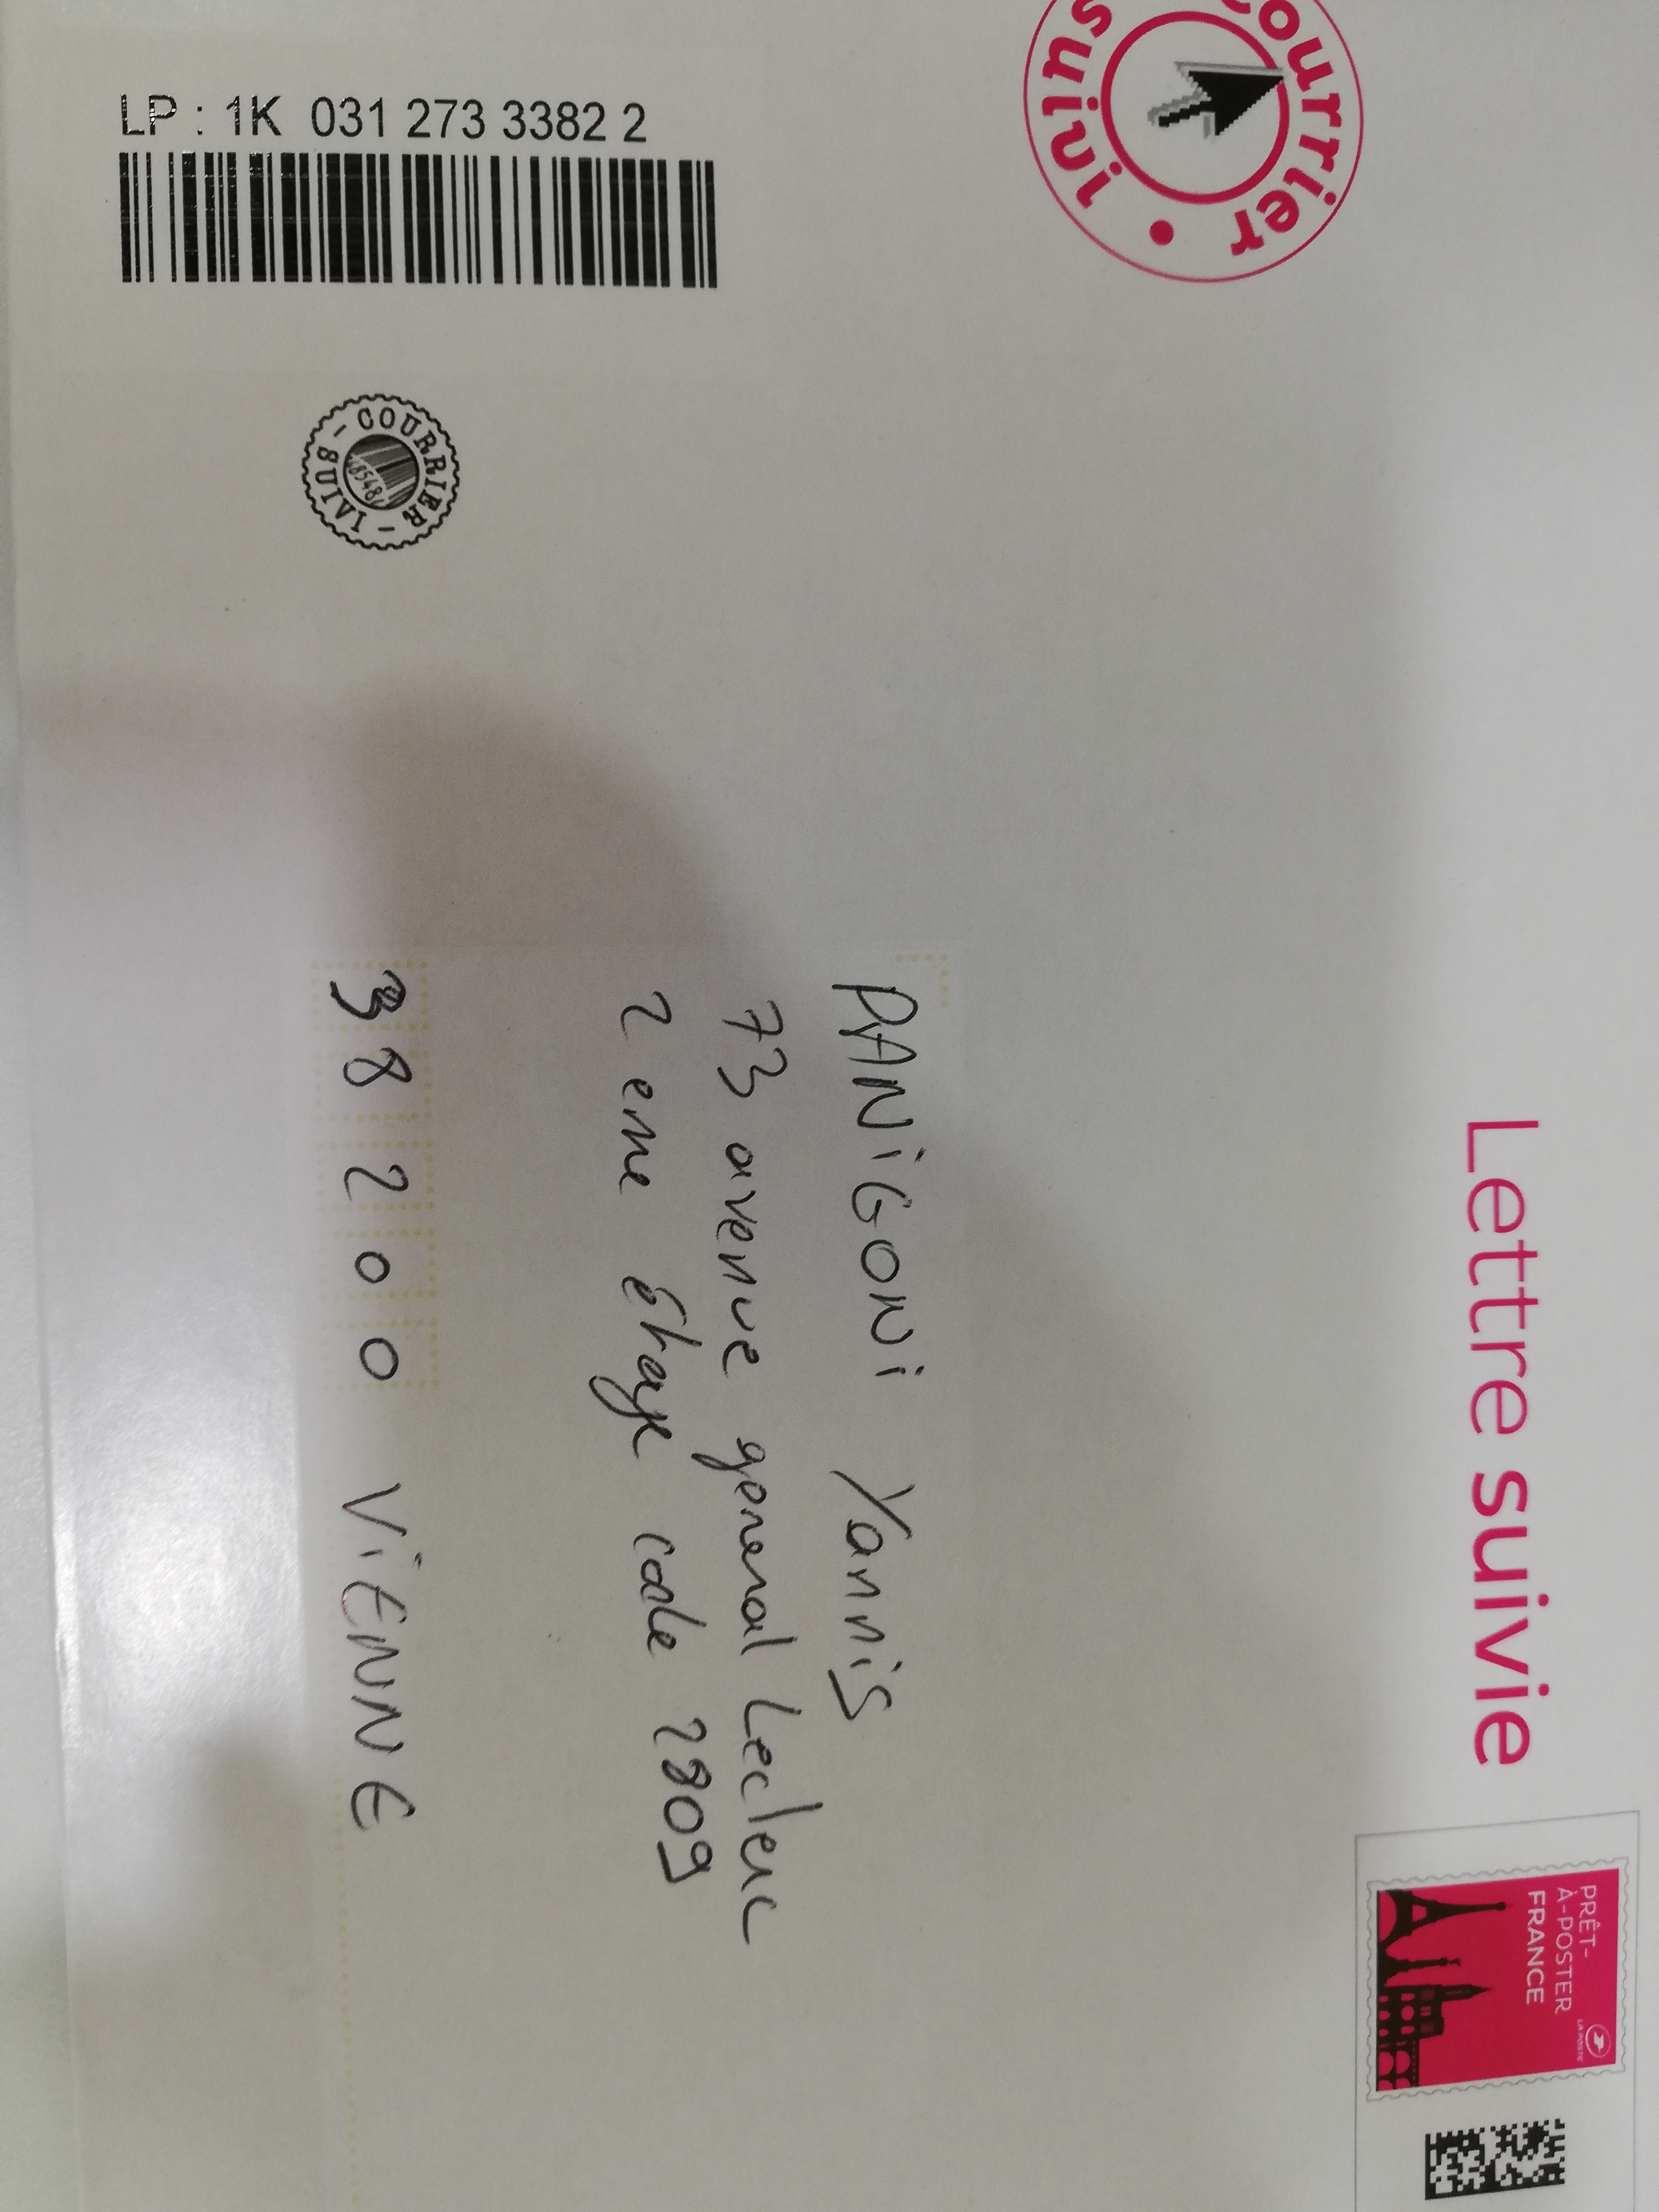 Lettre suivie
PRÊT-
À-POSTER
FRANCE
LA POSTE
courrier • suivi
LP : 1K 031 273 3382 2
COURRIER - SUIVI -
PANiGONi Yannis
73 avenue general Leclerc
2 eme étage code 2809
38200 ViENNE